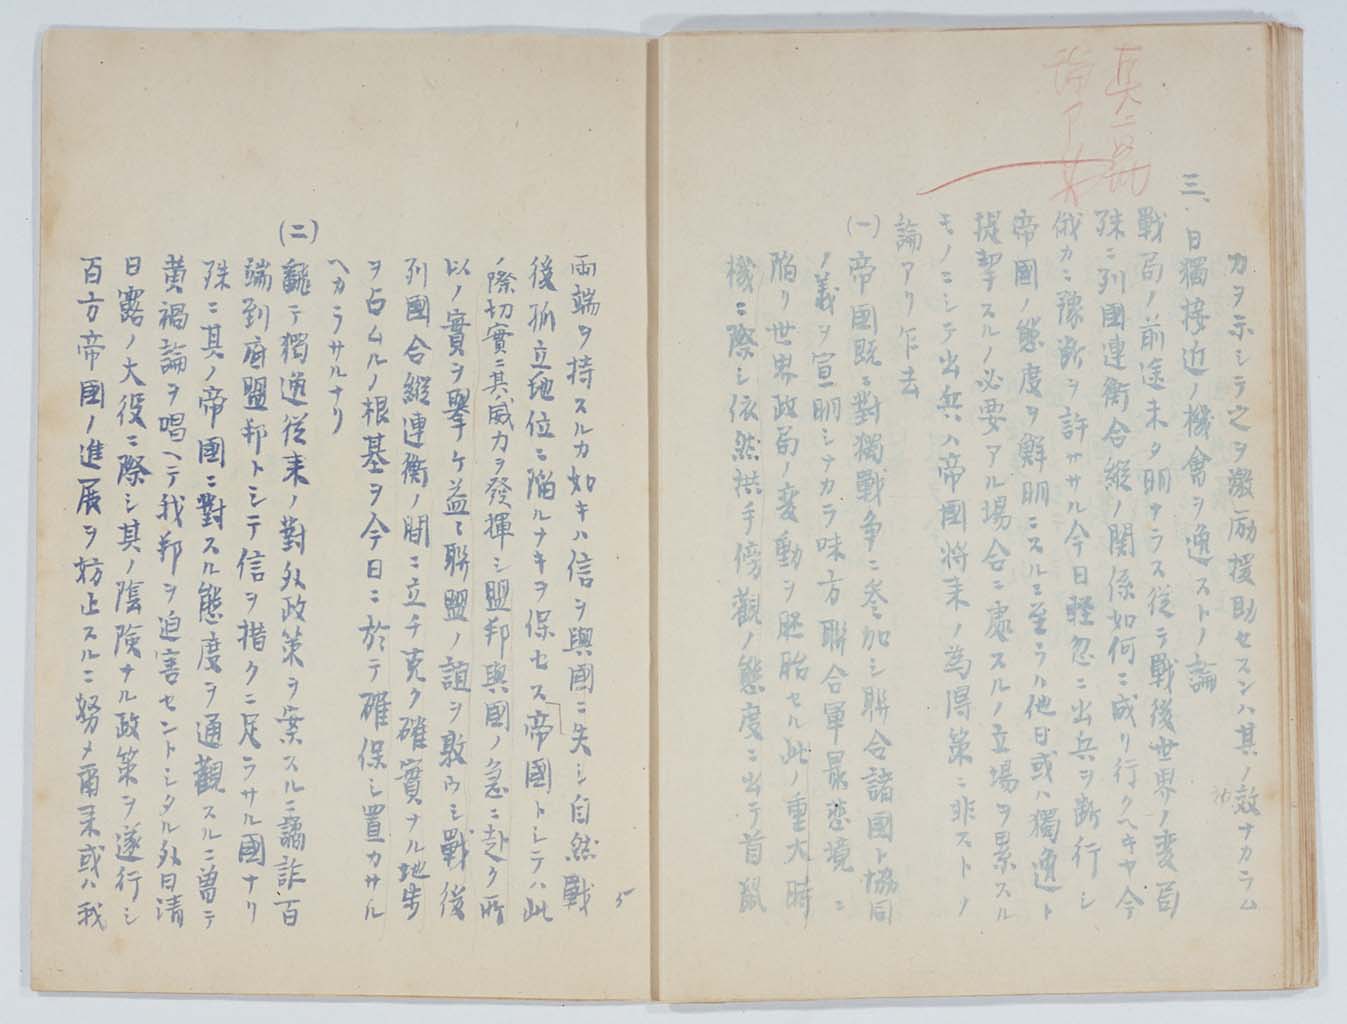 力ヲ示シテ之ヲ激励援助セスンハ其ノ效ナカラム
三、日獨接近ノ機會ヲ逸ストノ論
戰局ノ前途未タ明ナラス從テ戰後世界ノ変局
殊ニ列國連衡合縱ノ関係如何ニ成リ行クヘキヤ今
俄カニ豫断ヲ許ササル今日軽忽ニ出兵ヲ断行シ
帝國ノ態度ヲ鮮明ニスルニ至ラハ他日或ハ獨逸ト
提挈スルノ必要アル場合ニ處スルノ立場ヲ累スル
モノニシテ出兵ハ帝國将来ノ為得策ニ非ストノ
論アリ乍去
(一)帝國既ニ對獨戰争ニ参加シ聯合諸國ト協同
ノ義ヲ宣明シナカラ味方聯合軍最悲境ニ
陥リ世界政局ノ変動ヲ胚胎セル此ノ重大時
機ニ際シ依然拱手傍觀ノ態度ニ出テ首鼠
両端ヲ持スルカ如キハ信ヲ與國ニ失シ自然戰
後孤立地位ニ陥ルナキヲ保セス帝國トシテハ此
ノ際切實ニ其威力ヲ發揮シ盟邦與國ノ急ニ赴ク所
以ノ實ヲ擧ケ益〻聯盟ノ誼ヲ敦ウシ戰後
列國合縱連衡ノ間ニ立チ克ク確實ナル地歩
ヲ占ムルノ根基ヲ今日ニ於テ確保シ置カサル
ヘカラサルナリ
(二)飜テ獨逸従来ノ對外政策ヲ案スルニ譎詐百
端到底盟邦トシテ信ヲ措クニ足ラサル國ナリ
殊ニ其ノ帝國ニ對スル態度ヲ通觀スルニ曽テ
黄禍論ヲ唱ヘテ我邦ヲ迫害セントシタル外日清
日露ノ大役ニ際シ其ノ陰険ナル政策ヲ遂行シ
百方帝國ノ進展ヲ妨止スルニ努メ爾来或ハ我
5